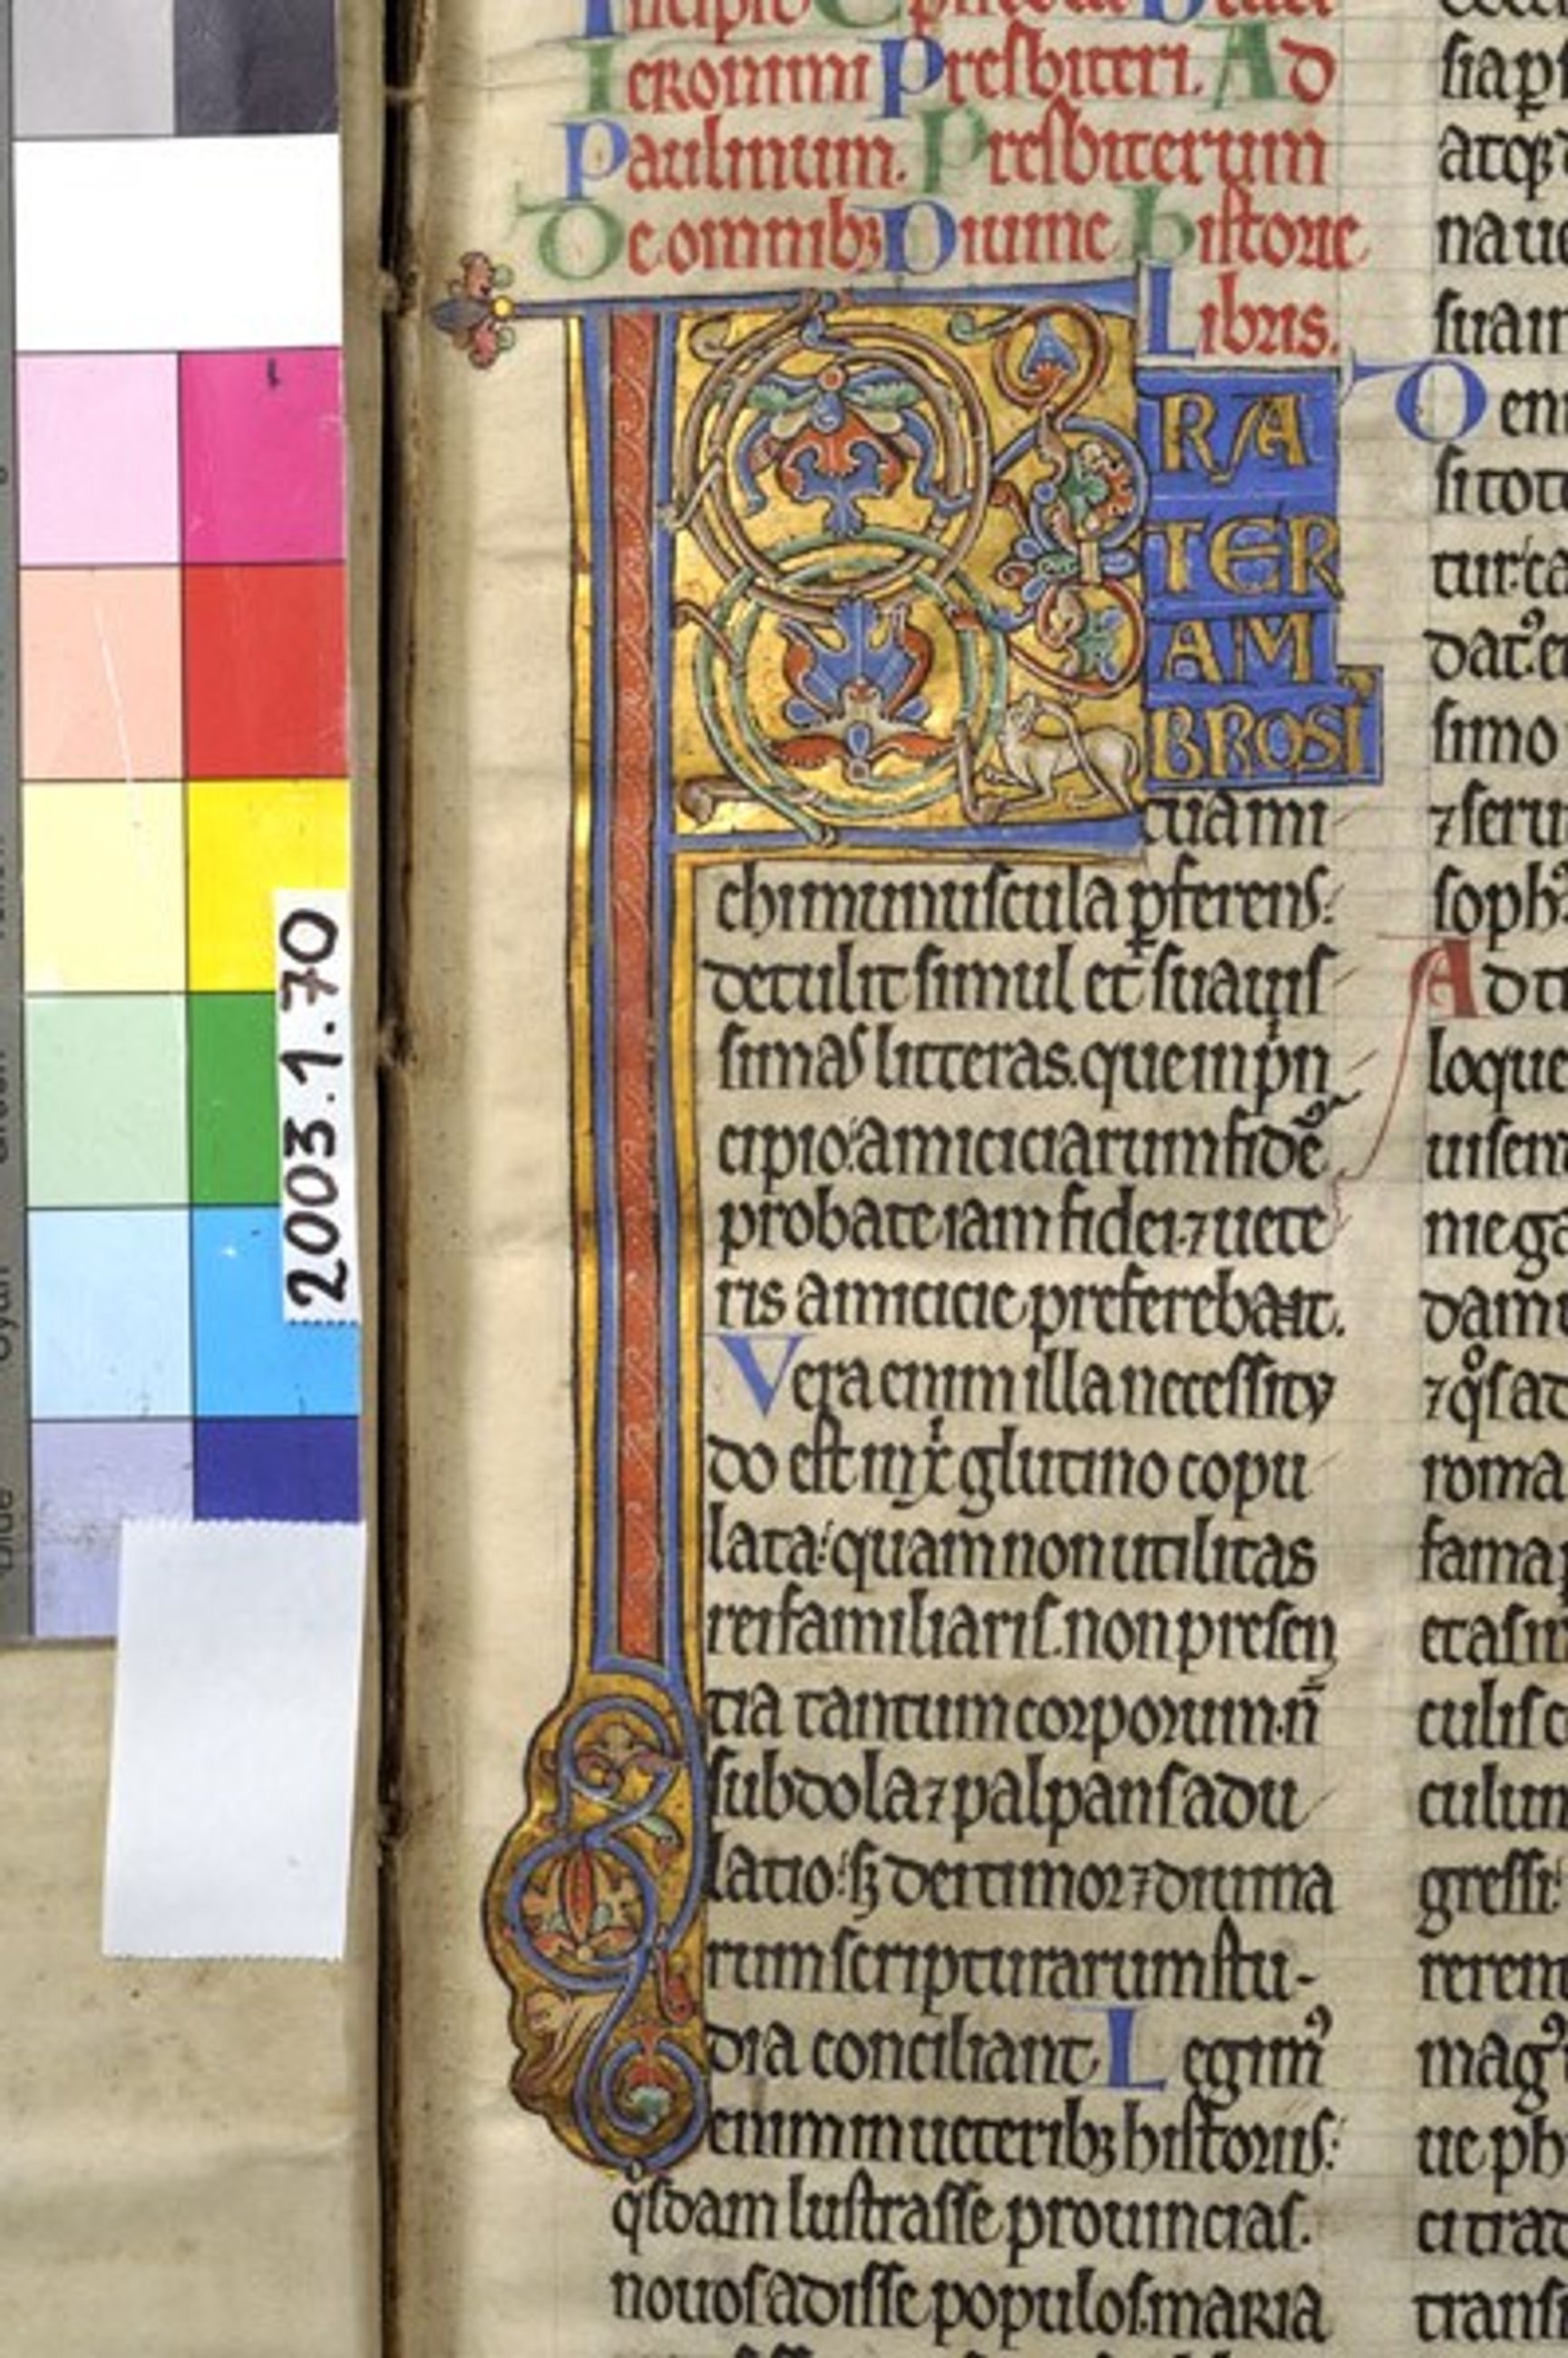 Ieronimi Presbiteri. Ad
Paulinum. Presbiterum
De omnibꝫ Diuine Historie
Libris.
F
RA
TER
AM
BROSI
tuam
chi munuscula ꝑferens:
detulit simul et suauis
simas litteras. que in pͥn
cipio amiciciarum fidē
probate iam fidei ⁊ uete
ris amicicie preferebant.
Vera enim illa necessitu
do est ⁊ xp̄i glutino copu
lata: quam non utilitas
rei familiaris. non presen
tia tantum corporum. n̄
subdola ⁊ palpans adu
latio: sꝫ dei timor ⁊ diuina
rum scripturarum stu-
dia conciliant. Legimꝰ
enim in ueteribꝫ historiis:
qͦsdam lustrasse prouincias.
nouos adisse populos. maria
siap
atqꝫ
naue
suam
Den
si tot
tur: ca
dat.
simo
⁊ seru
soph
Ad
loque
uisen
mega
dam
⁊ qͦs ad
roma
fama
etas in
culis
culum
gressi
rerem
magͥ
ue ph
citrad
trans
2003.1.70